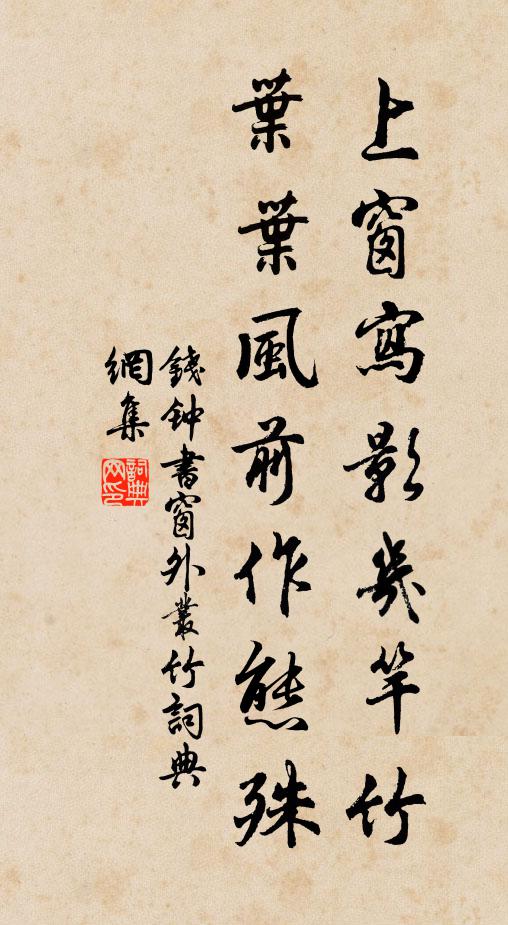 上窗寫影幾竿竹
葉葉風前作態殊
錢钟書窗外叢竹詞典
網集
詞典網印